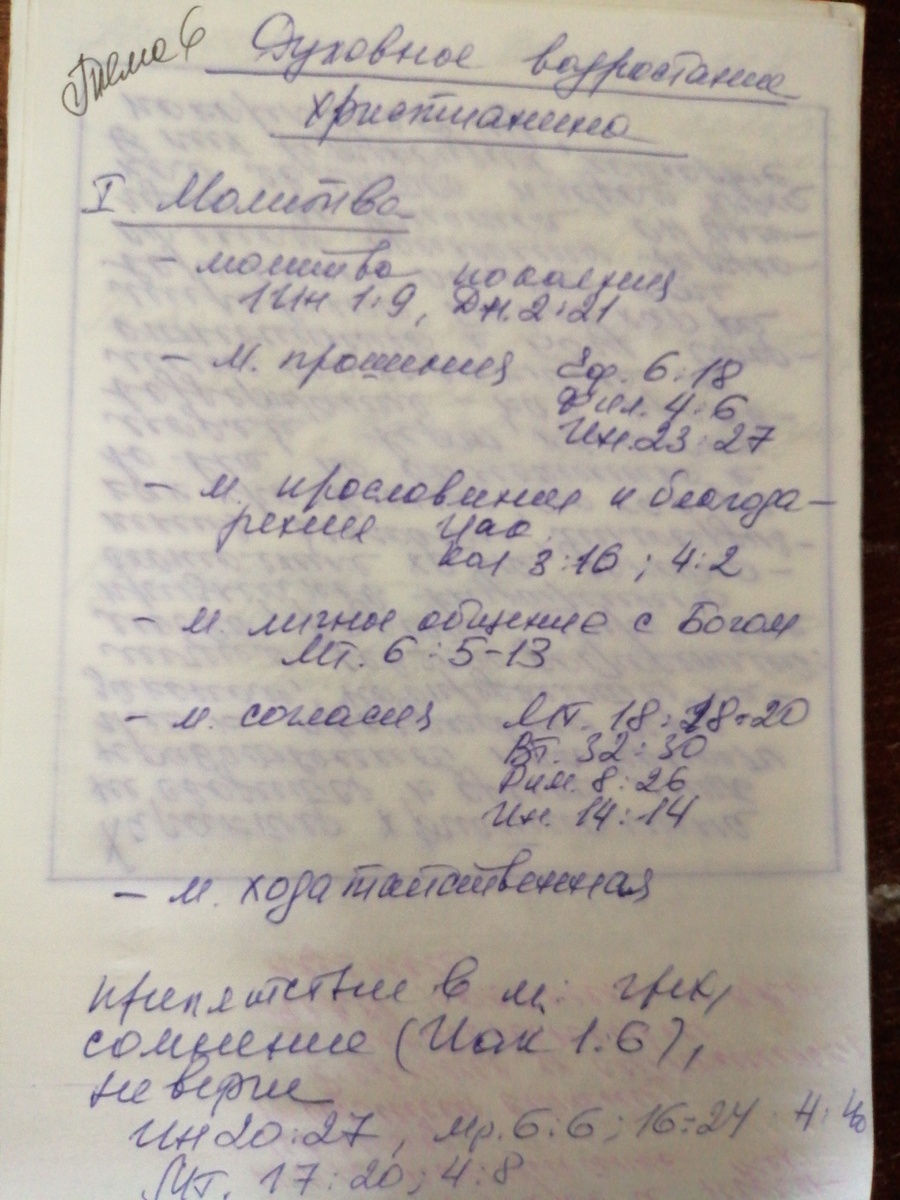 Тема 6
Духовное возростание
христианина
I Молитва
- молитва покаяния
1 Ин 1:9, Дн. 2:21
- М. прошения Еф. 6:18
Фил. 4:6
Ин. 23:27
- м. прославения и благода-
рения
Кол 3:16; 4:2
- м. личное общение с Богом
Мт. 6:5-13
- м. согласия Мт. 18:18-20
Вт. 32:30
Рим. 8:26
Ин. 14:14
- м. ходатайственная
Припятствие в м: грех,
сомнение (Иак 1:6),
неверие
Ин 20:27, Мр. 6:6; 16:24 4:40
Мт. 17:20; 4:8